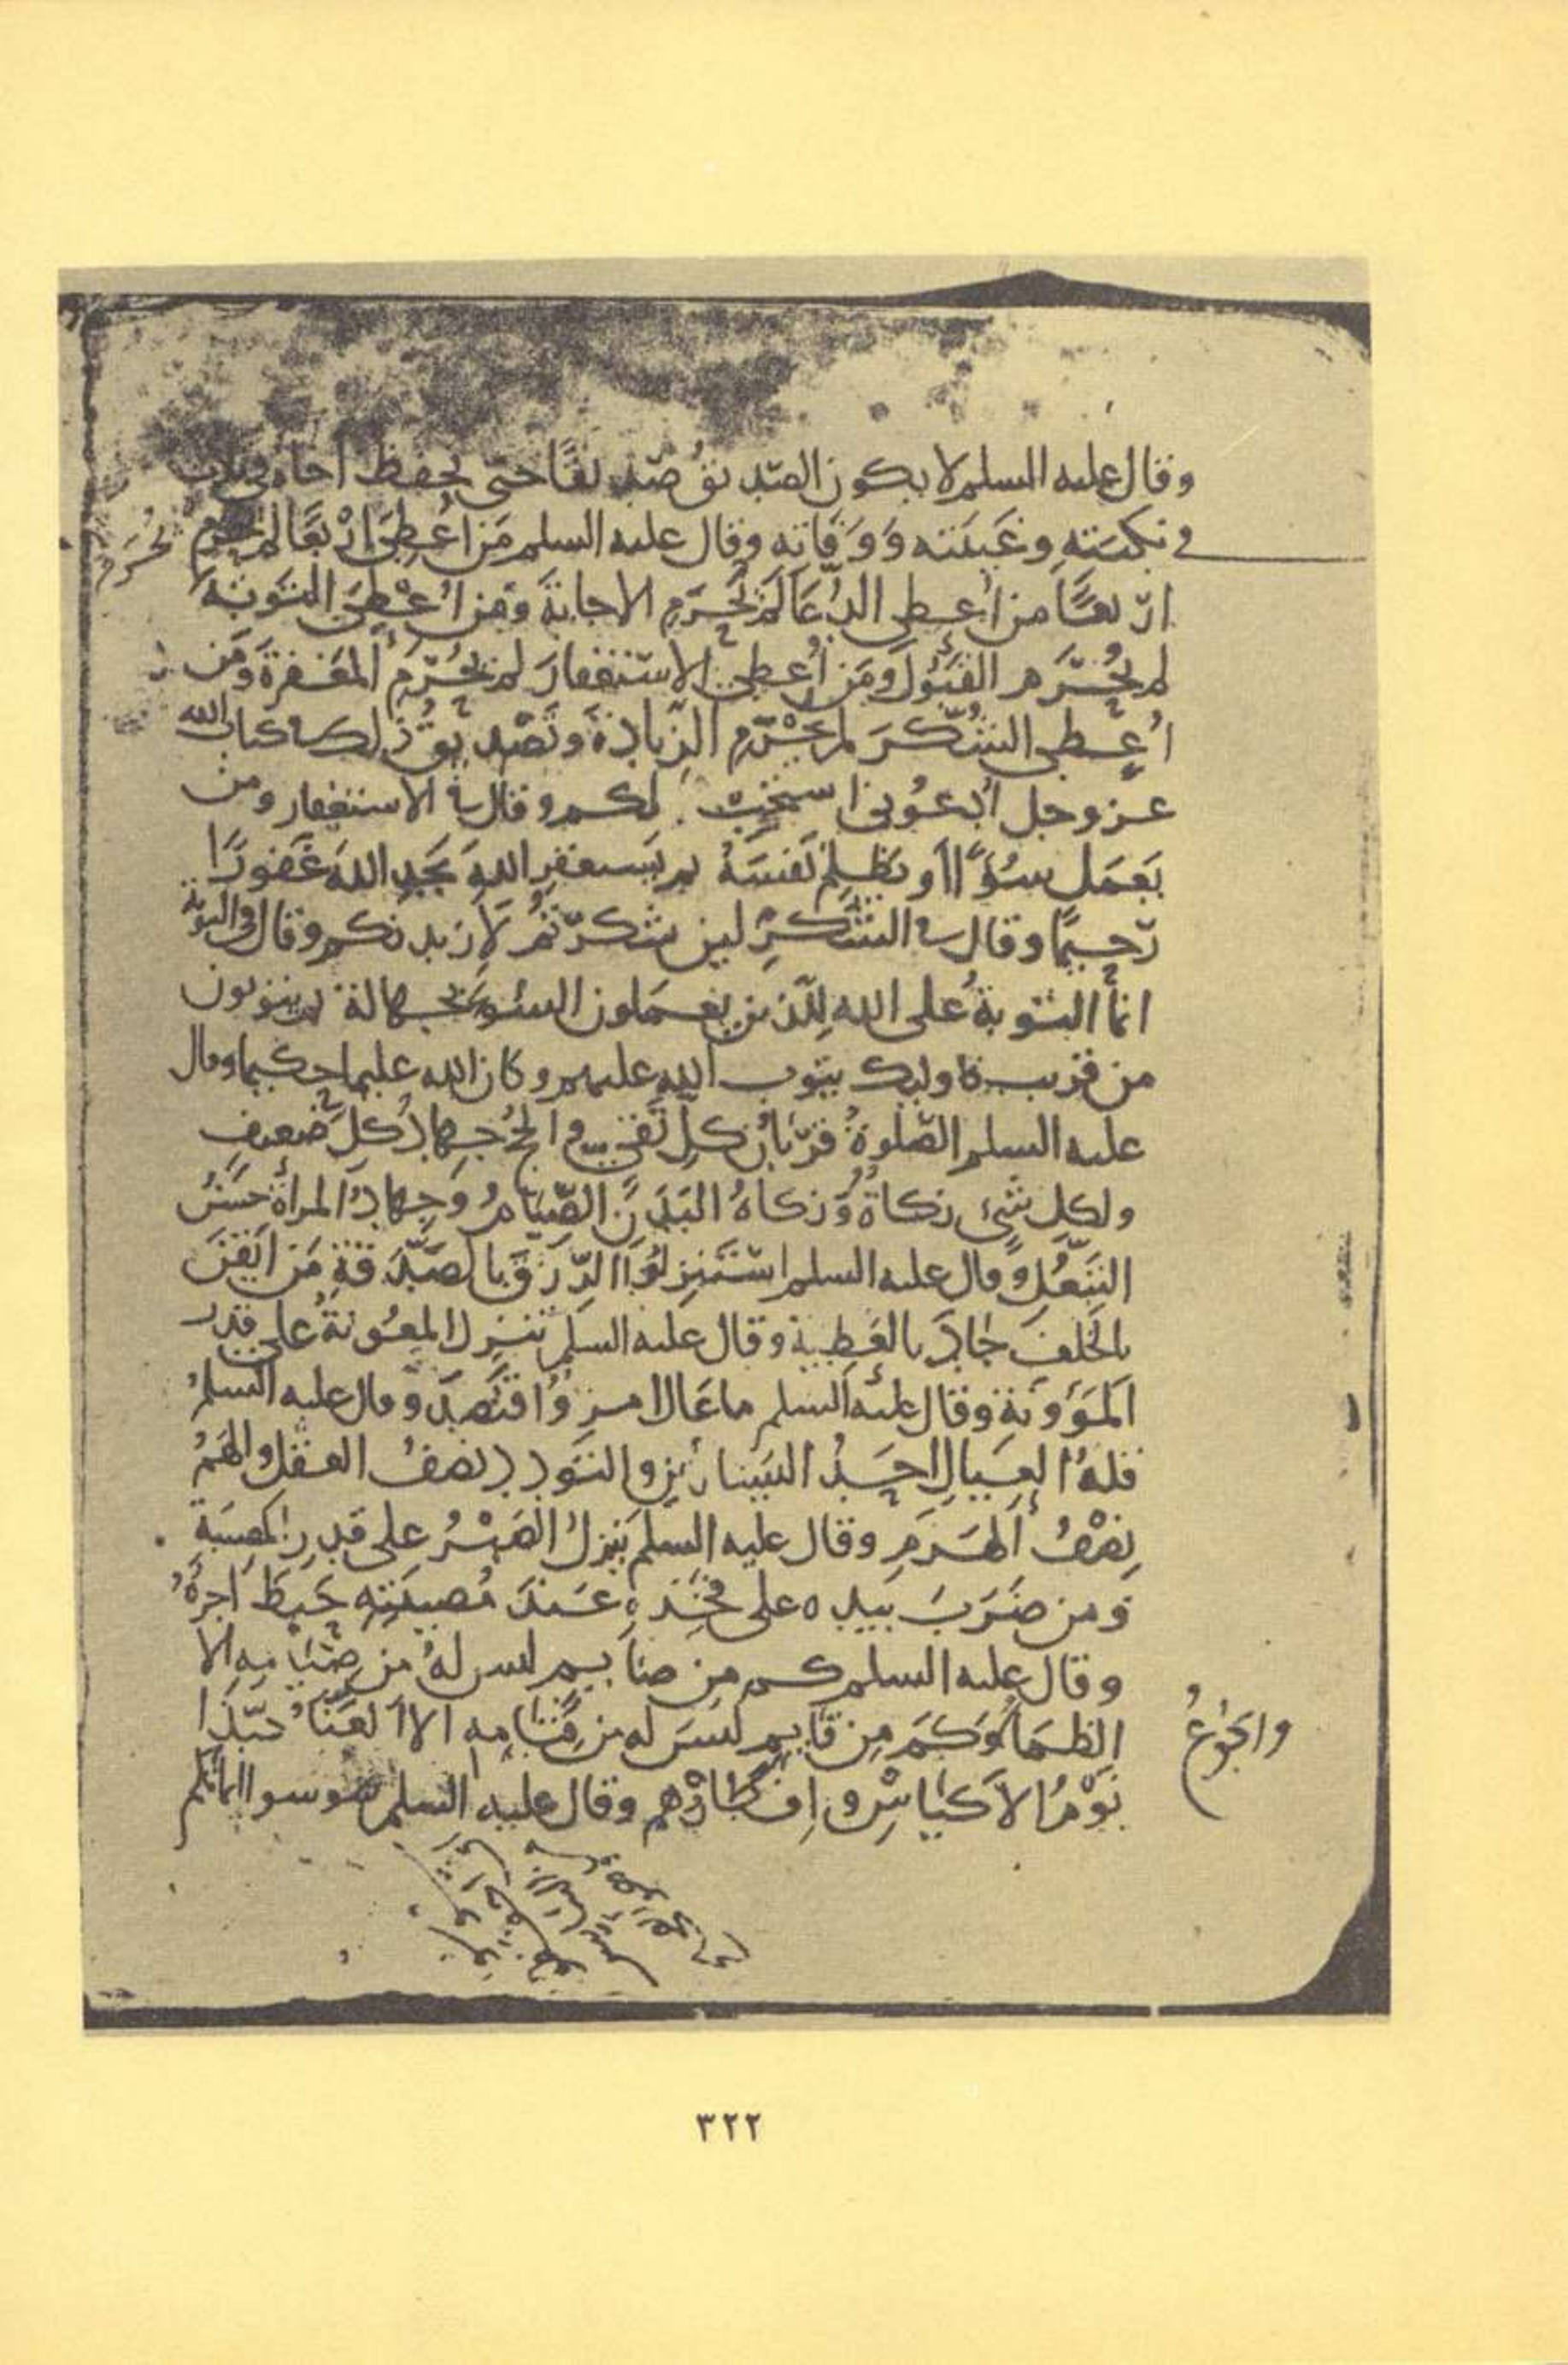 وقال عليه السلم لا يكون الصديق صديقا حتى يحفظ اخاه في ثلاث
في نكبته وغيبته ووفاته وقال عليه السلم من اعطي اربعا لم يحرم
يحرم
اربعا من اعطي الدعا لم يحرم الاجابة ومن اعطي التوبة
لم يحرم القبول ومن اعطي الاستغفار لم يحرم المغفرة ومن
اعطي الشكر لم يحرم الزيادة وتصديق ذلك في كتاب الله
عز وجل ادعوني استجب لكم وقال في الاستغفار ومن
يعمل سوءا او يظلم نفسه ثم يستغفر الله يجد الله غفورا
رحيما وقال في الشكر لين شكرتم لازيدنكم وقال في التوبة
انما التوبة على الله للذين يعملون السوء بجهالة ثم يتوبون
من قريب فاوليك يتوب الله عليهم وكان الله عليما حكيما وقال
عليه السلم الصلوة قربان كل تقي والحج جهاد كل ضعيف
ولكل شيء زكاة وزكاة البدن الصيام وجهاد المراة حسن
التبعل وقال عليه السلم استنزلوا الرزق بالصدقة من ايقن
بالخلف جاد بالعطية وقال عليه السلم تنزل المعونة على قدر
المؤونة وقال عليه السلم ما عال امرؤ اقتصد وقال عليه السلم
قلة العيال احد اليسارين والتودد نصف العقل والهم
نصف الهرم وقال عليه السلم ينزل الصبر على قدر المصيبة
ومن ضرب بيده على فخذه عند مصيبته حبط اجره
وقال عليه السلم كم من صايم ليس له من صيامه الا
الظما وكم من قايم ليس له من قيامه الا العنا حبذا
والجوع
نوم الاكياس وافطارهم وقال عليه السلم سوسوا ايمانكم
٣٢٢